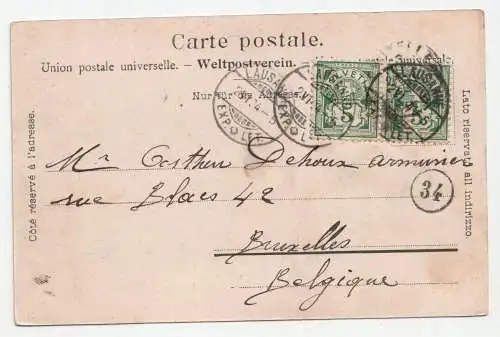 Carte postale.
Union postale universelle. — Weltpostverein. —
Nur für die Adresse.
LAUSANNE
EXP. LET.
HELVETIA
5
5
Côté réservé à l'adresse.
Lato riservato all indirizzo.
34
Mr Dehoux armurier
rue Blaes 42
Bruxelles
Belgique